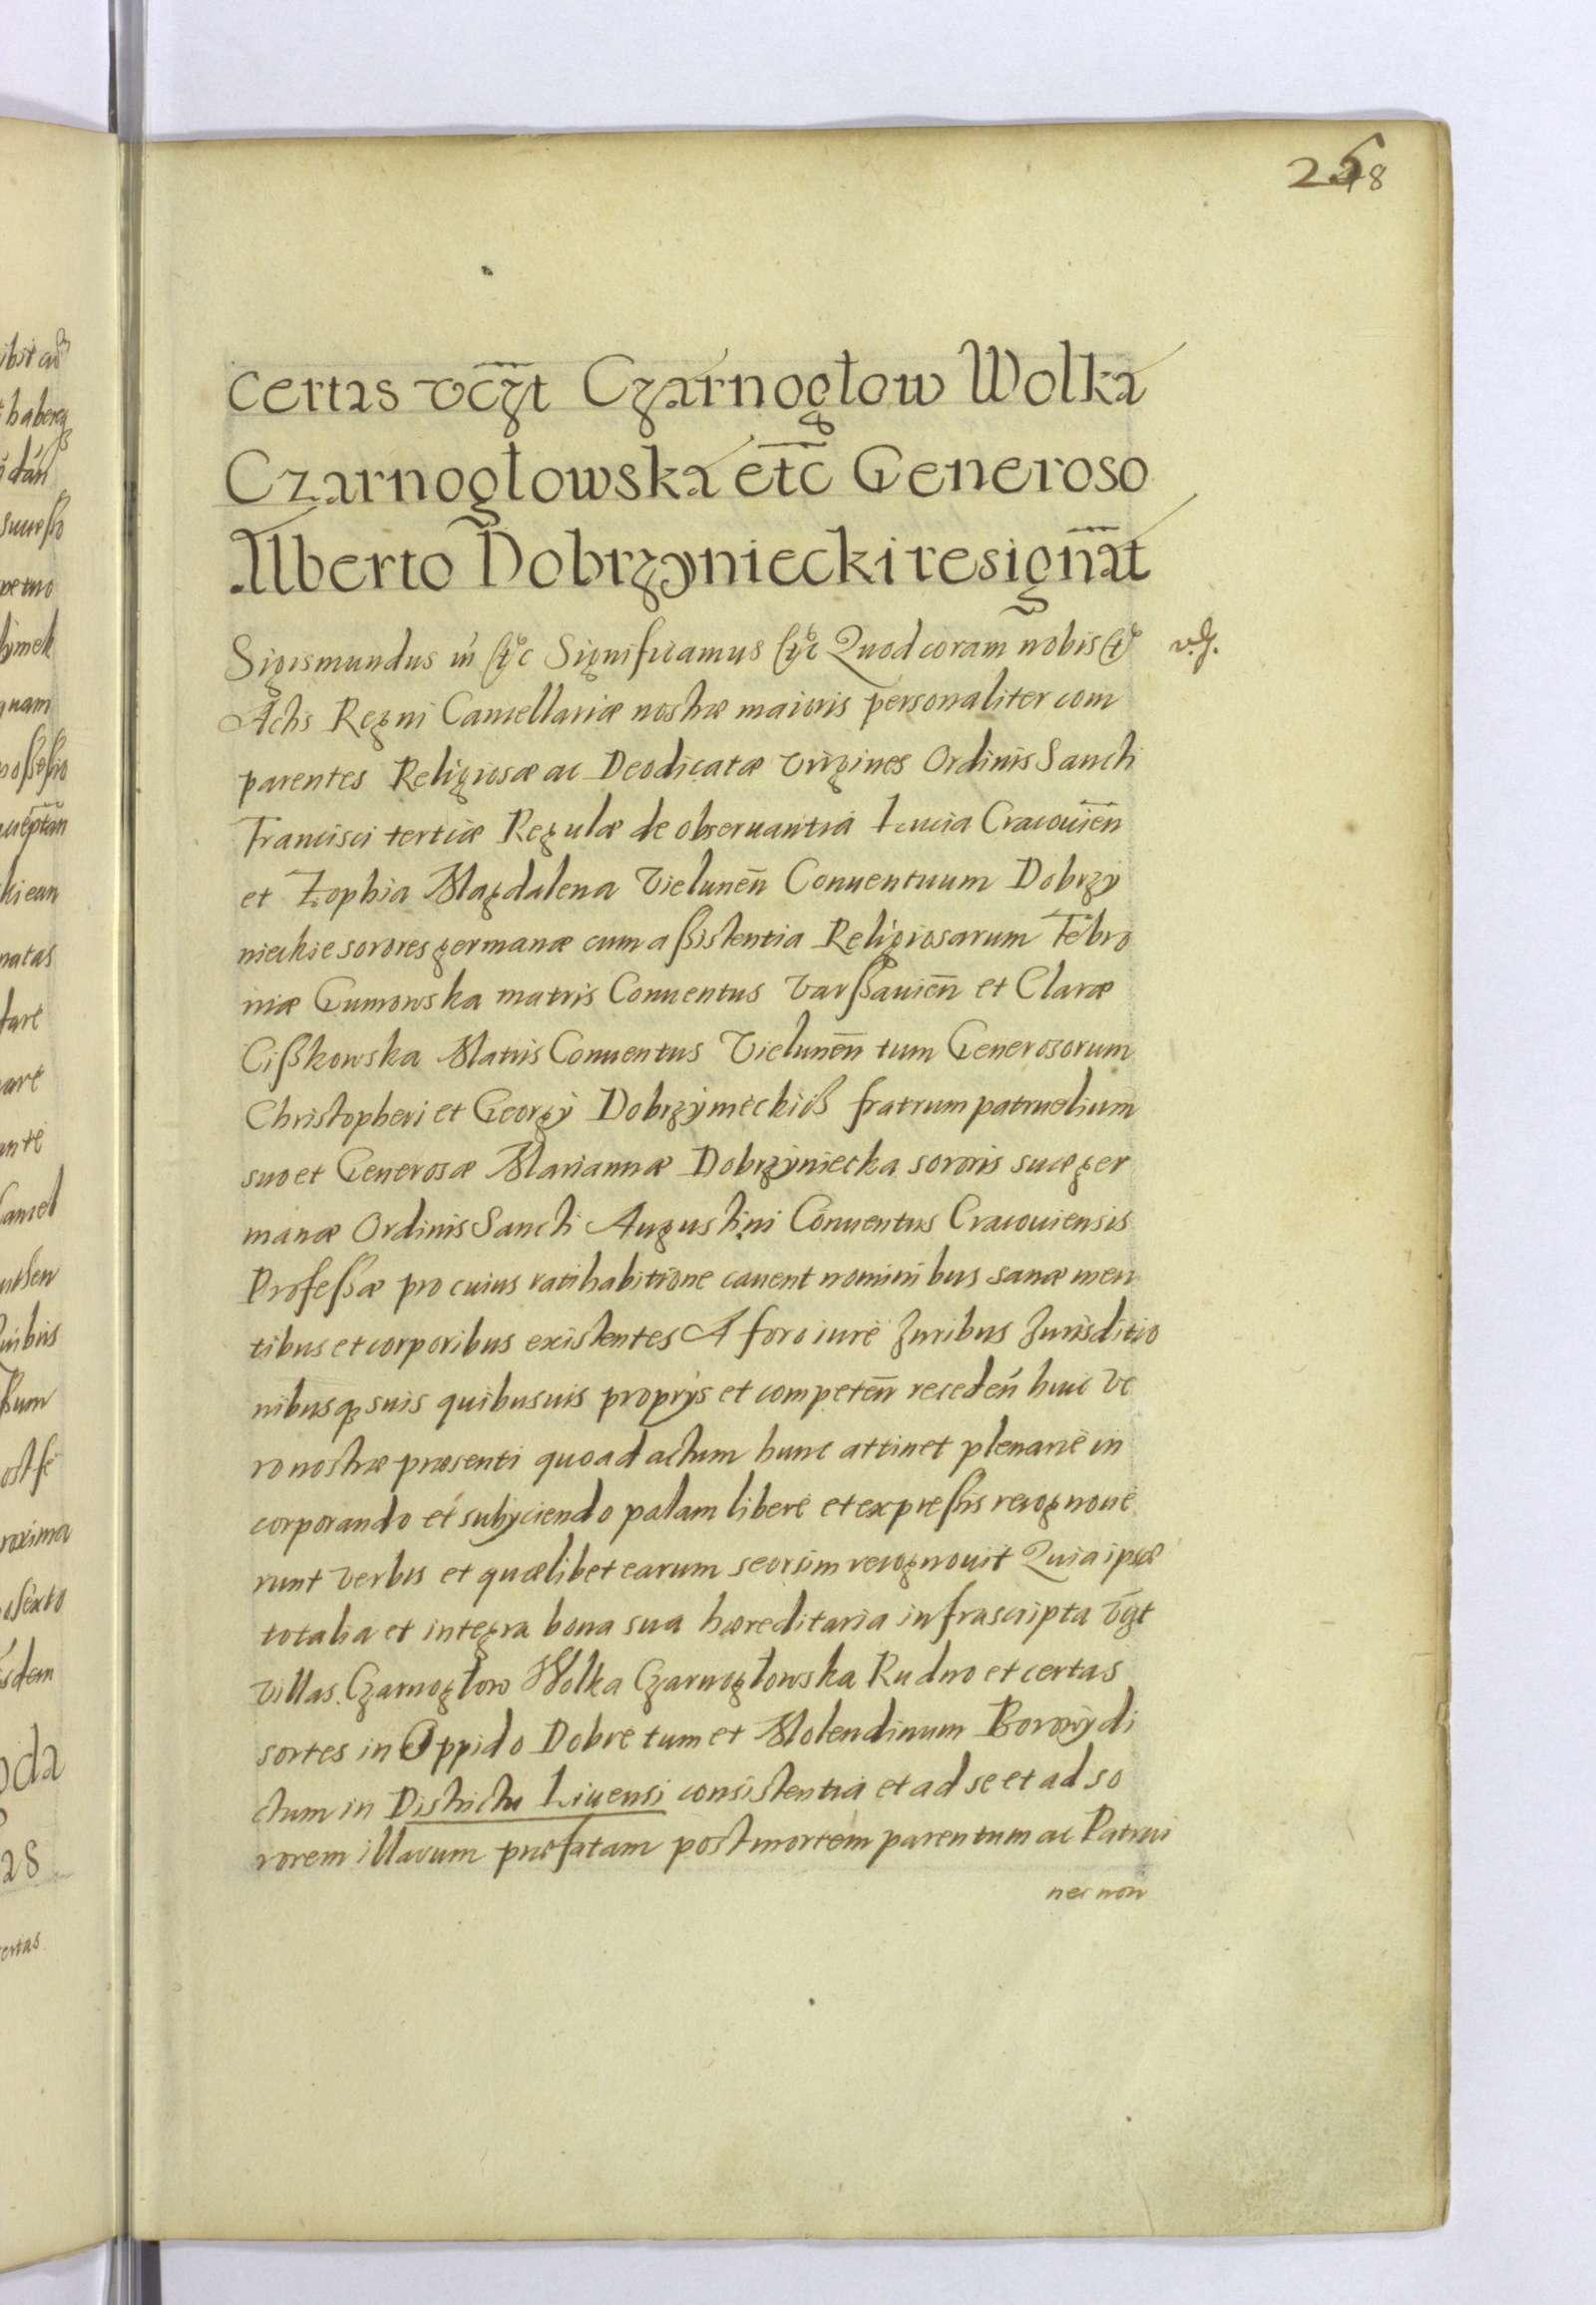 258
certas vczt Czarnogłow Wolka
Czarnogłowska etc Generoso
Alberto Dobrzyniecki resignāt
Sigismundus III etc Significamus etc Quod coram nobis et
Actis Regni Cancellariæ nostræ maioris personaliter com
parentes Religiosæ ac Deodicatæ Virgines Ordinis Sancti
Francisci tertiæ Regulæ de obseruantia Lucia Cracouieñ
et Zophia Magdalena Vieluneñ Conuentuum Dobrzy
nieckie sorores germanæ cum assistentia Religiosarum Febro
niæ Gumowska matris Conuentus Varssauieñ et Claræ
Cißkowska Matris Conuentus Vieluneñ tum Generosorum
Christopheri et Georgy Dobrzynieckich fratrum patruelium
suo et Generosæ Mariannæ Dobrzyniecka sororis suæ ger
manæ Ordinis Sancti Augustini Conuentus Cracouiensis
Professæ pro cuius ratihabitione cauent nominibus sanæ men
tibus et corporibus existentes A foro iure Iuribus Iurisditio
nibusq suis quibusuis proprys et competeñ recedeń huic ve
ro nostræ præsenti quoad actum hunc attinet plenarie in
corporando et subyciendo palam libere et expressis recognoue
runt verbis et quælibet earum seorsim recognouit Quia ipsæ
totalia et integra bona sua hæreditaria infrascripta vgt
villas Czarnogłow Wolka Czarnogłowska Rudno et certas
sortes in Oppido Dobre tum et Molendinum Borowy di
ctum in Districtu Liuensi consistentia et ad se et ad so
rorem illarum præfatam post mortem parentum ac Patrui
nec non